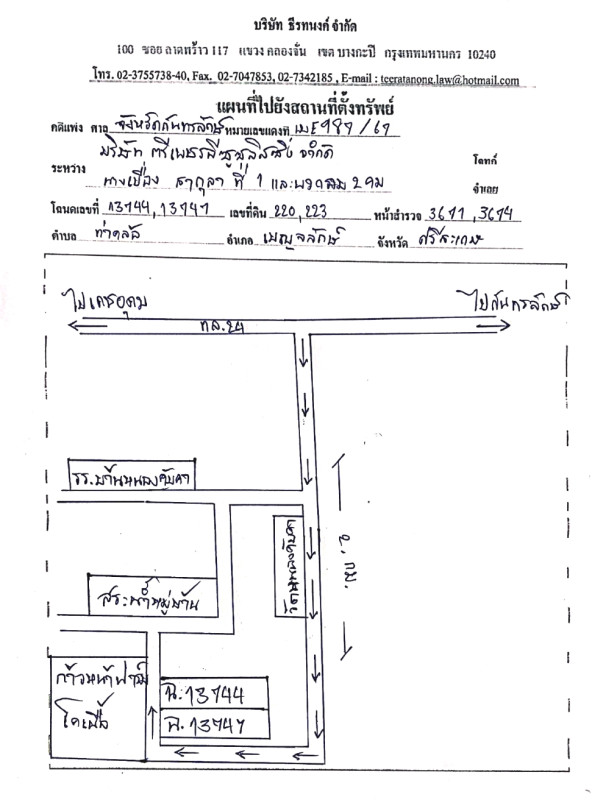 บริษัท ธีรทนงค์ จำกัด
100 ซอย ลาดพร้าว 117 แขวง คลองจั่น เขต บางกะปิ กรุงเทพมหานคร 10240
โทร. 02-3755738-40, Fax. 02-7047853, 02-7342185 , E-mail : teeratanong.law@hotmail.com
แผนที่ไปยังสถานที่ตั้งทรัพย์
คดีแพ่ง ศาล จังหวัดกันทรลักษ์ หมายเลขแดงที่ ผบE987/67
ระหว่าง บริษัท ตรีเพชรอีซูซุลิสซิ่ง จำกัด โจทก์
ที่ 1 และพวกรวม 2 คน จำเลย
โฉนดเลขที่ 13744, 13747 เลขที่ดิน 220, 223 หน้าสำรวจ 3671, 3674
ตำบล ท่าคล้อ อำเภอ เบญจลักษ์ จังหวัด ศรีสะเกษ
ไปเดชอุดม ไปกันทรลักษ์
ทล.24
รร.บ้านหนองคับคา
2. กม.
สระน้ำหมู่บ้าน
ก้าวหน้าฟาร์ม
โคเนื้อ
ฉ.13744
ฉ.13747